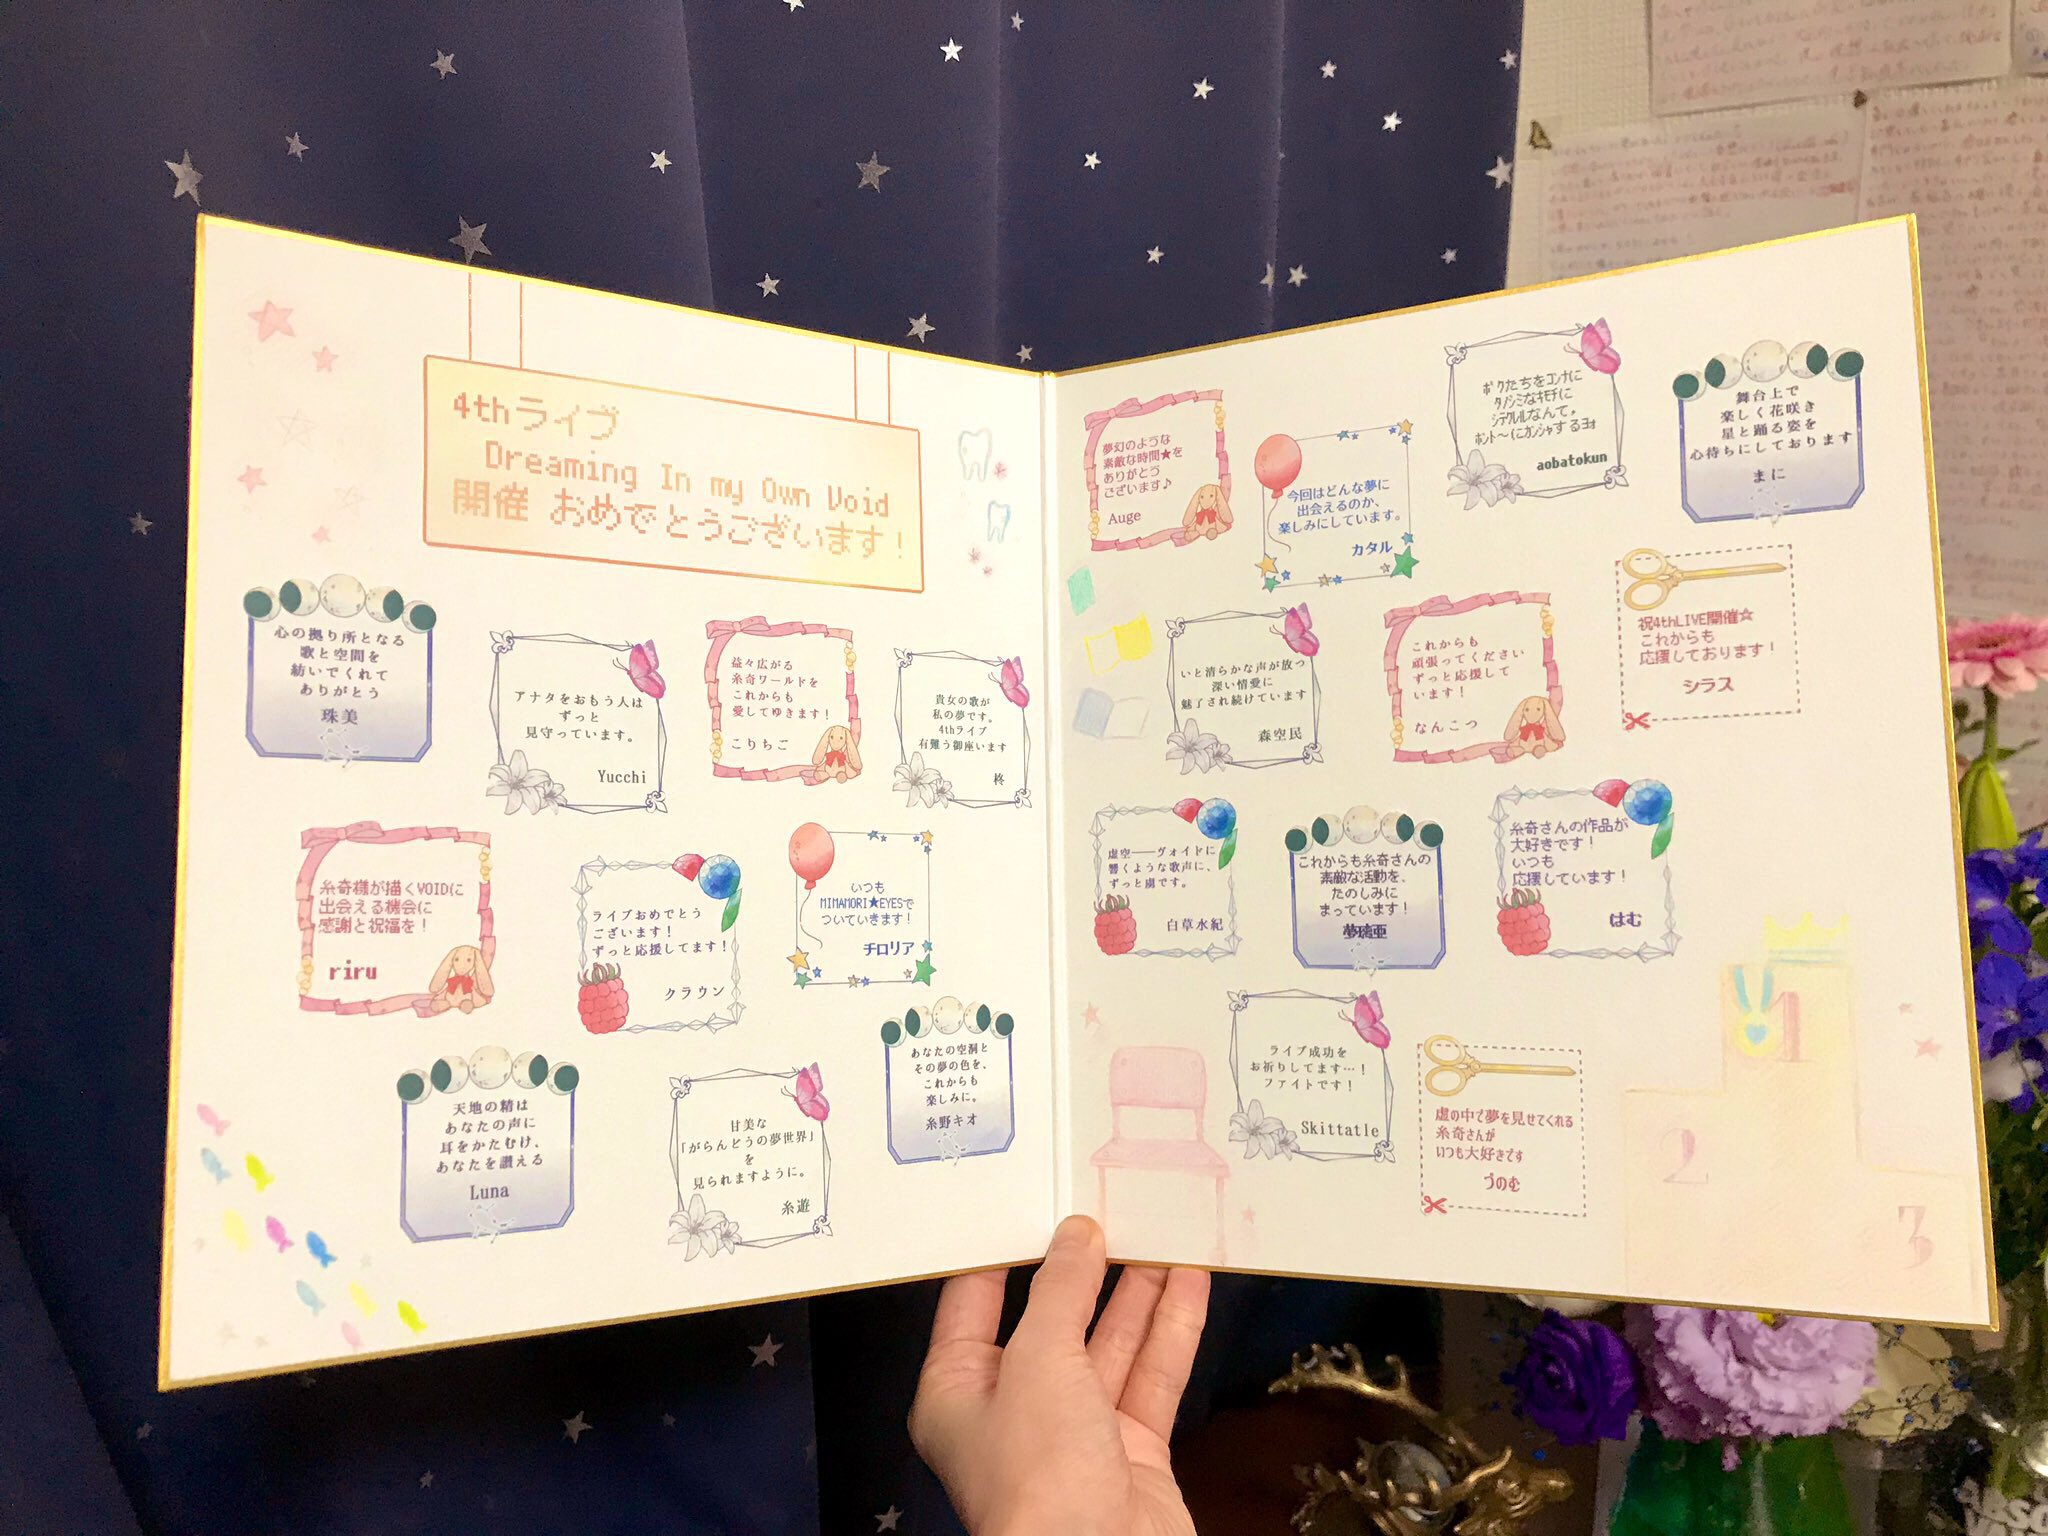 4thライブ
Dreaming In my Own Void
開催 おめでとうございます!
心の拠り所となる
歌と空間を
紡いでくれて
ありがとう
珠美
アナタをおもう人は
ずっと
見守っています。
Yucchi
益々広がる
糸奇ワールドを
これからも
愛してゆきます!
こりちこ
貴女の歌が
私の夢です。
4thライブ
有難う御座います
柊
糸奇様が描くVOIDに
出会える機会に
感謝と祝福を!
riru
ライブおめでとう
ございます!
ずっと応援してます!
クラウン
いつも
MIMAMORI★EYESで
ついていきます!
チロリア
天地の精は
あなたの声に
耳をかたむけ、
あなたを讃える
Luna
甘美な
「がらんどうの夢世界」
を
見られますように。
糸遊
あなたの空洞と
その夢の色を、
これからも
楽しみに。
糸野キオ
夢幻のような
素敵な時間★を
ありがとう
ございます♪
Auge
今回はどんな夢に
出会えるのか、
楽しみにしています。
カタル
ボクたちをコンナに
タノシミなキモチに
シテクレルなんて。
ホント～にカンシャするヨォ
aobatokun
舞台上で
楽しく花咲き
星と踊る姿を
心待ちにしております
まに
いと清らかな声が放つ
深い情愛に
魅了され続けています
森空民
これからも
頑張ってください
ずっと応援して
います!
なんこつ
祝4thLIVE開催☆
これからも
応援しております!
シラス
虚空――ヴォイドに
響くような歌声に、
ずっと虜です。
白草水紀
これからも糸奇さんの
素敵な活動を、
たのしみに
まっています!
夢璃亜
糸奇さんの作品が
大好きです!
いつも
応援しています!
はむ
ライブ成功を
お祈りしてます…!
ファイトです!
Skittatle
虚の中で夢を見せてくれる
糸奇さんが
いつも大好きです
づのむ
1
2
3